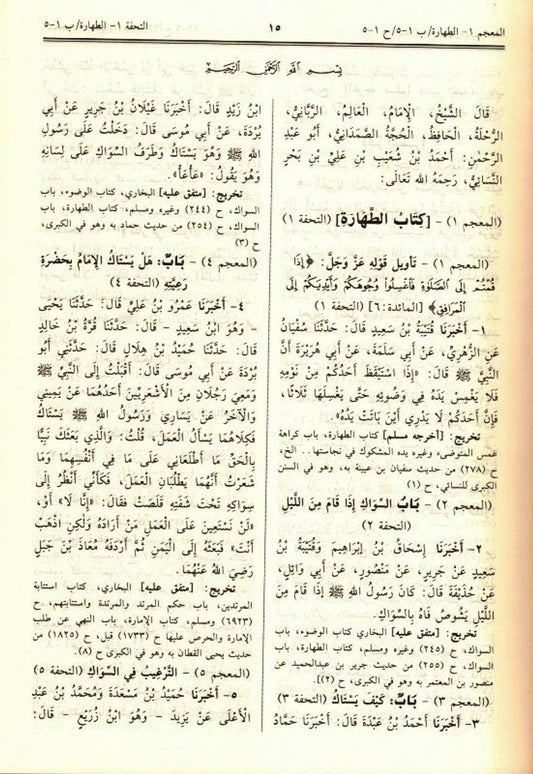 المعجم ١- الطهارة/ ب ١-٥/ ح ١-٥
١٥
التحفة ١- الطهارة/ ب ١-٥
بسم الله الرحمن الرحيم
قَالَ الشَّيْخُ، الْإِمَامُ، الْعَالِمُ، الرَّبَّانِيُّ،
الرُّحْلَةُ، الْحَافِظُ، الْحُجَّةُ الصَّمَدَانِيُّ، أَبُو عَبْدِ
الرَّحْمٰنِ: أَحْمَدُ بْنُ شُعَيْبِ بْنِ عَلِيِّ بْنِ بَحْرٍ
النَّسَائِيُّ، رَحِمَهُ الله تَعَالَى:
(المعجم ١) - [كِتَابُ الطَّهَارَةِ] (التحفة ١)
(المعجم ١) - تأويل قوله عَزَّ وَجَلَّ: ﴿إِذَا
قُمْتُمْ إِلَى الصَّلَوٰةِ فَاغْسِلُوا وُجُوهَكُمْ وَأَيْدِيَكُمْ إِلَى
الْمَرَافِقِ﴾ [المائدة:٦] (التحفة ١)
١- أَخْبَرَنَا قُتَيْبَةُ بْنُ سَعِيدٍ قَالَ: حَدَّثَنَا سُفْيَانُ
عَنِ الزُّهْرِيِّ، عَنْ أَبِي سَلَمَةَ، عَنْ أَبِي هُرَيْرَةَ أَنَّ
النَّبِيَّ ﷺ قَالَ: «إِذَا اسْتَيْقَظَ أَحَدُكُمْ مِنْ نَوْمِهِ
فَلَا يَغْمِسْ يَدَهُ فِي وَضُوئِهِ حَتَّى يَغْسِلَهَا ثَلَاثًا،
فَإِنَّ أَحَدَكُمْ لَا يَدْرِي أَيْنَ بَاتَتْ يَدُهُ».
تخريج: [أخرجه مسلم] كتاب الطهارة، باب كراهة
غمس المتوضىء وغيره يده المشكوك في نجاستها.. الخ،
(٢٧٨) من حديث سفيان بن عيينة به، وهو في السنن
الكبرى للنسائي، ح (١)
(المعجم ٢) - بَابُ السِّوَاكِ إِذَا قَامَ مِنَ اللَّيْلِ
(التحفة ٢)
٢- أَخْبَرَنَا إِسْحَاقُ بْنُ إِبْرَاهِيمَ وَقُتَيْبَةُ بْنُ
سَعِيدٍ عَنْ جَرِيرٍ، عَنْ مَنْصُورٍ، عَنْ أَبِي وَائِلٍ،
عَنْ حُذَيْفَةَ قَالَ: كَانَ رَسُولُ اللهِ ﷺ إِذَا قَامَ مِنَ
اللَّيْلِ يَشُوصُ فَاهُ بِالسِّوَاكِ.
تخريج: [متفق عليه] البخاري كتاب الوضوء، باب
السواك، ح (٢٤٥) وغيره ومسلم، كتاب الطهارة، باب
السواك، ح (٢٥٥) من حديث جرير بن عبدالحميد عن
منصور بن المعتمر به وهو في الكبرى، ح (٢)].
(المعجم ٣) - بَابٌ: كَيْفَ يَسْتَاكُ (التحفة ٣)
٣- أَخْبَرَنَا أَحْمَدُ بْنُ عَبْدَةَ قَالَ: أَخْبَرَنَا حَمَّادُ
ابْنُ زَيْدٍ قَالَ: أَخْبَرَنَا غَيْلَانُ بْنُ جَرِيرٍ عَنْ أَبِي
بُرْدَةَ، عَنْ أَبِي مُوسَى قَالَ: دَخَلْتُ عَلَى رَسُولِ
اللهِ ﷺ وَهُوَ يَسْتَاكُ وَطَرَفُ السِّوَاكِ عَلَى لِسَانِهِ
وَهُوَ يَقُولُ: «عَأْعَأْ».
تخريج: [متفق عليه] البخاري، كتاب الوضوء، باب
السواك، ح (٢٤٤) وغيره ومسلم، كتاب الطهارة، باب
السواك، ح (٢٥٤) من حديث حماد به وهو في الكبرى،
ح (٣)
(المعجم ٤) - بَابٌ: هَلْ يَسْتَاكُ الْإِمَامُ بِحَضْرَةِ
رَعِيَّتِهِ (التحفة ٤)
٤- أَخْبَرَنَا عَمْرُو بْنُ عَلِيٍّ قَالَ: حَدَّثَنَا يَحْيَى
- وَهُوَ ابْنُ سَعِيدٍ - قَالَ: حَدَّثَنَا قُرَّةُ بْنُ خَالِدٍ
قَالَ: حَدَّثَنَا حُمَيْدُ بْنُ هِلَالٍ قَالَ: حَدَّثَنِي أَبُو
بُرْدَةَ عَنْ أَبِي مُوسَى قَالَ: أَقْبَلْتُ إِلَى النَّبِيِّ ﷺ
وَمَعِيَ رَجُلَانِ مِنَ الْأَشْعَرِيِّينَ أَحَدُهُمَا عَنْ يَمِينِي
وَالْآخَرُ عَنْ يَسَارِي وَرَسُولُ اللهِ ﷺ يَسْتَاكُ
فَكِلَاهُمَا يَسْأَلُ الْعَمَلَ، قُلْتُ: وَالَّذِي بَعَثَكَ نَبِيًّا
بِالْحَقِّ مَا أَطْلَعَانِي عَلَى مَا فِي أَنْفُسِهِمَا وَمَا
شَعَرْتُ أَنَّهُمَا يَطْلُبَانِ الْعَمَلَ، فَكَأَنِّي أَنْظُرُ إِلَى
سِوَاكِهِ تَحْتَ شَفَتِهِ قَلَصَتْ فَقَالَ: «إِنَّا لَا» أَوْ،
«لَنْ نَسْتَعِينَ عَلَى الْعَمَلِ مَنْ أَرَادَهُ وَلٰكِنِ اذْهَبْ
أَنْتَ» فَبَعَثَهُ إِلَى الْيَمَنِ ثُمَّ أَرْدَفَهُ مُعَاذَ بْنَ جَبَلٍ
رَضِيَ اللهُ عَنْهُمَا.
تخريج: [متفق عليه] البخاري، كتاب استتابة
المرتدين، باب حكم المرتد والمرتدة واستتابتهم، ح
(٦٩٢٣) ومسلم، كتاب الإمارة، باب النهي عن طلب
الإمارة والحرص عليها ح (١٧٣٣) قبل، ح (١٨٢٥) من
حديث يحيى القطان به وهو في الكبرى ح (٨).
(المعجم ٥) - التَّرْغِيبُ فِي السِّوَاكِ (التحفة ٥)
٥- أَخْبَرَنَا حُمَيْدُ بْنُ مَسْعَدَةَ وَمُحَمَّدُ بْنُ عَبْدِ
الْأَعْلَى عَنْ يَزِيدَ - وَهُوَ ابْنُ زُرَيْعٍ - قَالَ: